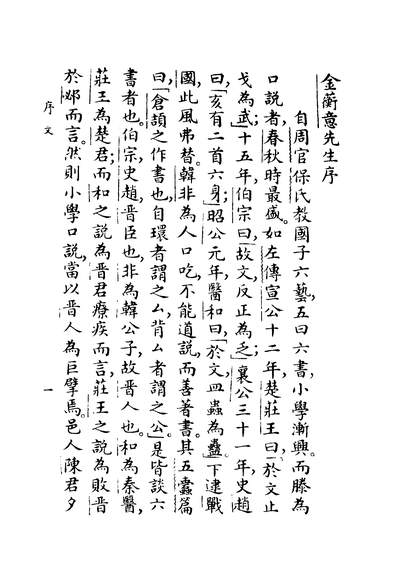 金蘅意先生序
自周官保氏教國子六藝,五曰六書,小學漸興。而滕為
口說者,春秋時最盛。如左傳宣公十二年,楚莊王曰,「於文止
戈為武;」十五年,伯宗曰,「故文反正為乏;」襄公三十一年,史趙
曰,「亥有二首六身;」昭公元年,醫和曰,「於文皿蟲為蠱。」下逮戰
國,此風弗替。韓非為人口吃,不能道說,而善著書。其五蠹篇
曰,「倉頡之作書也,自環者謂之厶,背厶者謂之公。」是皆談六
書者也。伯宗,史趙,晉臣也,非為韓公子,故晉人也。和為秦醫,
莊王為楚君;而和之說為晉君療疾而言,莊王之說為敗晉
於邲而言。然則小學口說,當以晉人為巨擘焉。邑人陳君夕
序文
一